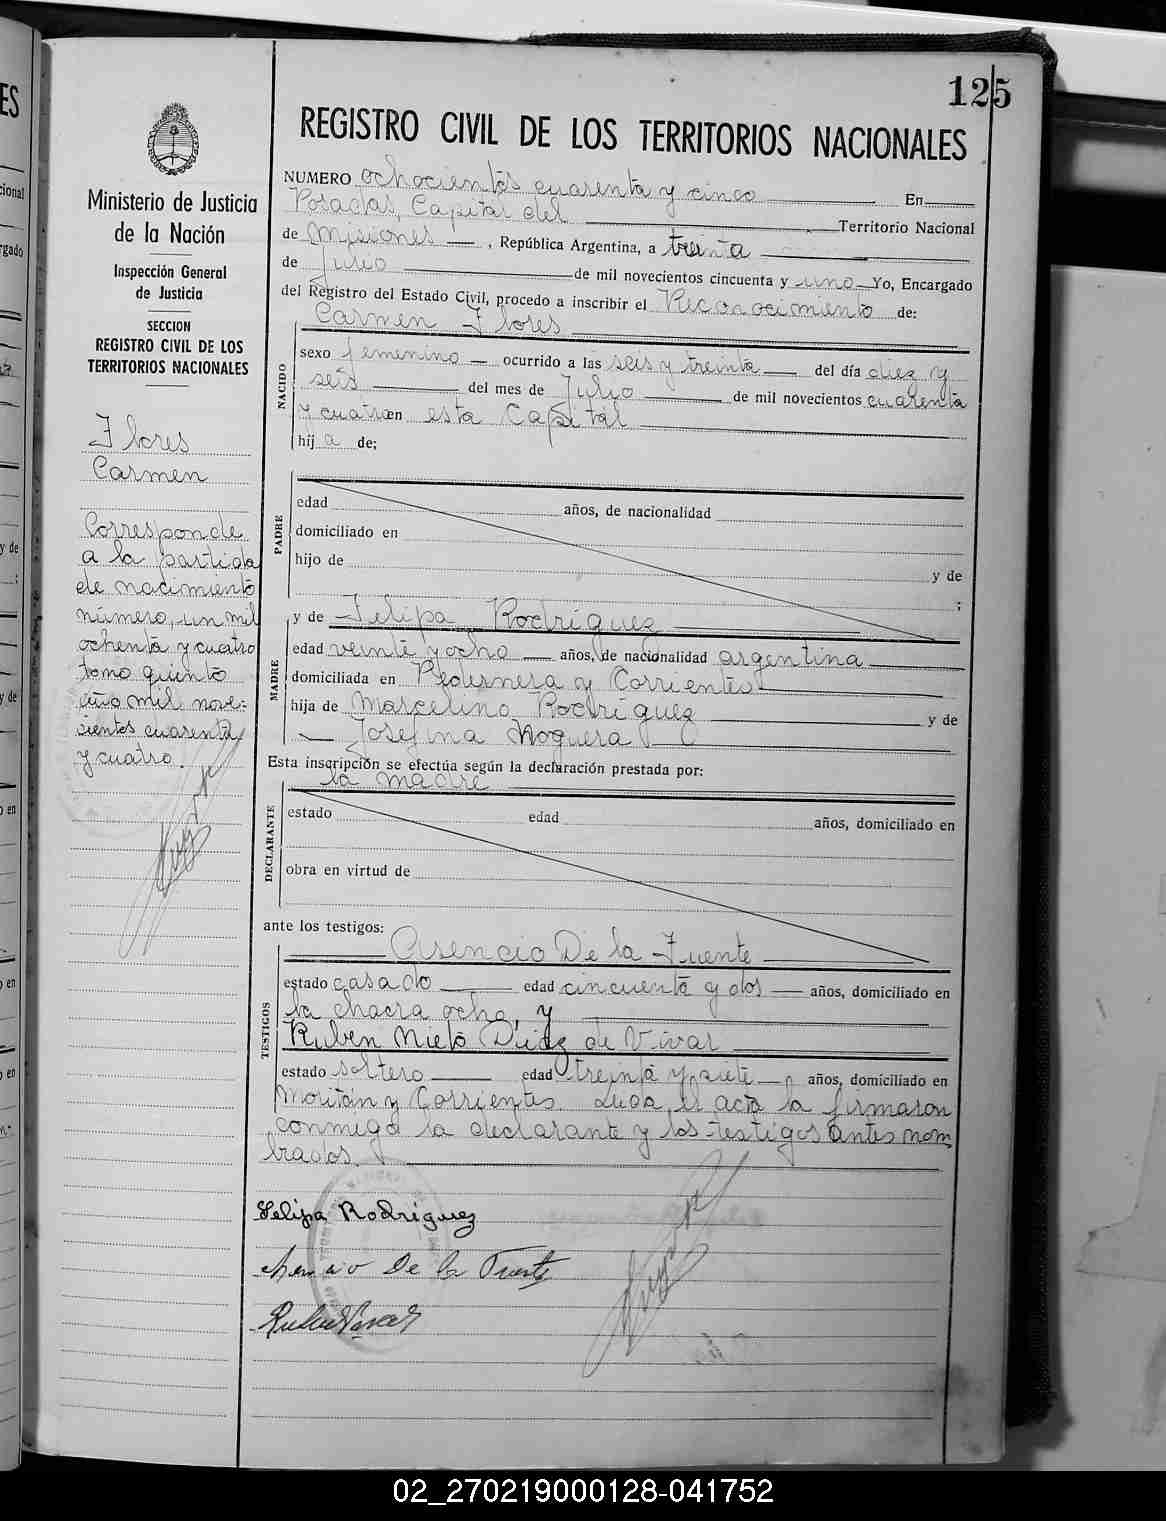 125
REGISTRO CIVIL DE LOS TERRITORIOS NACIONALES
Ministerio de Justicia
de la Nación
Inspección General
de Justicia
SECCION
REGISTRO CIVIL DE LOS
TERRITORIOS NACIONALES
Flores
Carmen
Corresponde
a la partida
de nacimiento
número, un mil
ochenta y cuatro
tomo quinto
año mil nove-
cientos cuarenta
y cuatro.
NUMERO ochocientos cuarenta y cinco En
Posadas, Capital del Territorio Nacional
de Misiones, República Argentina, a treinta
de Julio de mil novecientos cincuenta y uno Yo, Encargado
del Registro del Estado Civil, procedo a inscribir el Reconocimiento de:
Carmen Flores
NACIDO
sexo femenino ocurrido a las seis y treinta del día diez y
seis del mes de Julio de mil novecientos cuarenta
y cuatro en esta Capital
hij a de;
PADRE
edad años, de nacionalidad
domiciliado en
hijo de y de
;
y de Felipa Rodríguez
MADRE
edad veinte y ocho años, de nacionalidad argentina
domiciliada en Pedernera y Corrientes
hija de Marcelino Rodríguez y de
Josefina Noguera
Esta inscripción se efectúa según la declaración prestada por:
la madre
DECLARANTE
estado edad años, domiciliado en
obra en virtud de
ante los testigos:
Asencio De la Fuente
TESTIGOS
estado casado edad cincuenta y dos años, domiciliado en
la chacra ocho, y
Ruben Nieto Diaz de Vivar
estado soltero edad treinta y siete años, domiciliado en
y Corrientes. el acta la firmaron
conmigo la declarante y los testigos antes nom
brados.
Felipa Rodriguez
Asencio De la Fuente
02_270219000128-041752